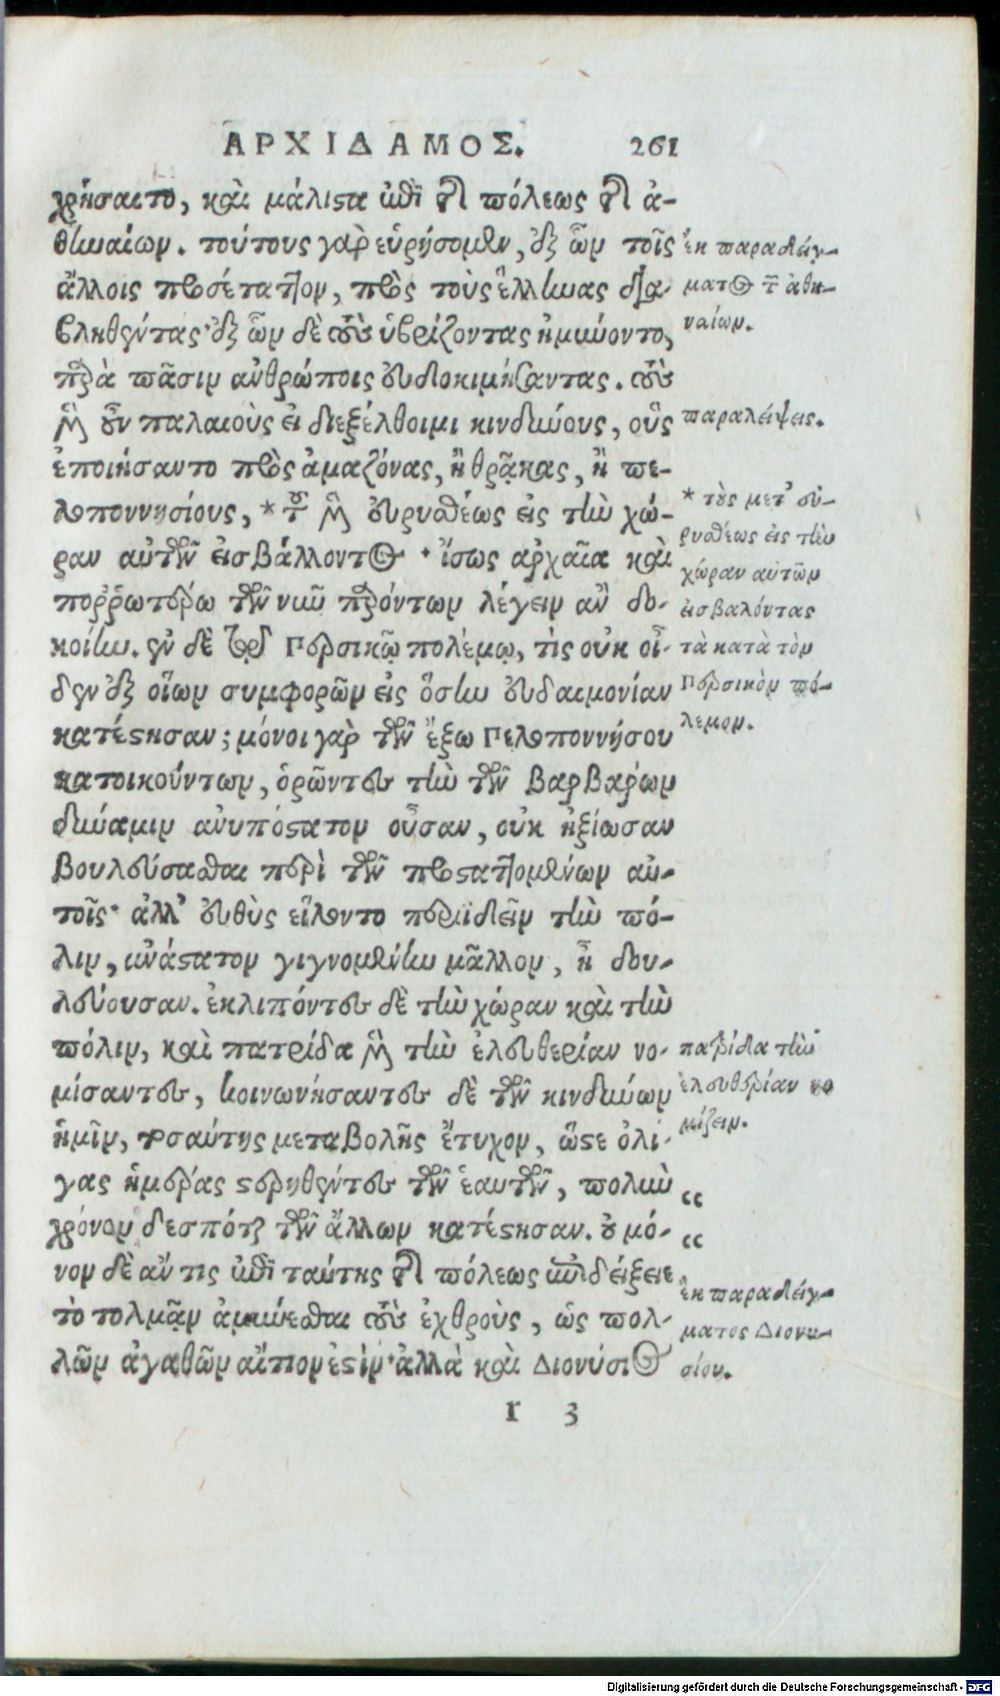 ΑΡΧΙΔΑΜΟΣ. 261
χρήσαιτο, καὶ μάλιστα ἐπὶ τῆς πόλεως τῆς ἀ-
θηναίων. τούτους γὰρ εὑρήσομεν, ἐξ ὧν τοῖς
ἄλλοις προσέταττον, πρὸς τοὺς ἕλληνας δια-
βληθέντας· ἐξ ὧν δὲ τοὺς ὑβρίζοντας ἠμύνοντο,
παρὰ πᾶσιν ἀνθρώποις εὐδοκιμήσαντας. τοὺς
μὲν οὖν παλαιοὺς εἰ διεξέλθοιμι κινδύνους, οὓς
ἐποιήσαντο πρὸς ἀμαζόνας, ἢ θρᾷκας, ἢ πε-
λοποννησίους, * τοῦ μὲν εὐρυσθέως εἰς τὴν χώ-
ραν αὐτῶν εἰσβάλλοντος· ἴσως ἀρχαῖα καὶ
πορρωτέρω τῶν νῦν παρόντων λέγειν ἂν δο-
κοίην. ἐν δὲ τῷ Περσικῷ πολέμῳ, τίς οὐκ οἶ-
δεν ἐξ οἵων συμφορῶν εἰς ὅσην εὐδαιμονίαν
κατέστησαν; μόνοι γὰρ τῶν ἔξω Πελοποννήσου
κατοικούντων, ὁρῶντες τὴν τῶν βαρβάρων
δύναμιν ἀνυπόστατον οὖσαν, οὐκ ἠξίωσαν
βουλεύσασθαι περὶ τῶν προσταττομένων αὐ-
τοῖς· ἀλλ' εὐθὺς εἵλοντο περιϊδεῖν τὴν πό-
λιν, ἀνάστατον γιγνομένην μᾶλλον, ἢ δου-
λεύουσαν. ἐκλιπόντες δὲ τὴν χώραν καὶ τὴν
πόλιν, καὶ πατρίδα μὲν τὴν ἐλευθερίαν νο-
μίσαντες, κοινωνήσαντες δὲ τῶν κινδύνων
ἡμῖν, τοσαύτης μεταβολῆς ἔτυχον, ὥστε ὀλί-
γας ἡμέρας στερηθέντες τῶν ἑαυτῶν, πολὺν
χρόνον δεσπόται τῶν ἄλλων κατέστησαν. οὐ μό-
νον δὲ ἄν τις ἐπὶ ταύτης τῆς πόλεως ἐπιδείξειε
τὸ τολμᾷν ἀμύνεσθαι τοὺς ἐχθροὺς, ὡς πολ-
λῶν ἀγαθῶν αἴτιον ἐστίν· ἀλλὰ καὶ Διονύσιος
r 3
ἐκ παραδείγ-
ματος τῶν ἀθη-
ναίων.
παραλείψεις.
* τοὺς μετ' εὐ-
ρυσθέως εἰς τὴν
χώραν αὐτῶν
εἰσβαλόντας
τὰ κατὰ τὸν
Περσικὸν πό-
λεμον.
πατρίδα τὴν
ἐλευθερίαν νο
μίζειν.
“
“
ἐκ παραδείγ-
ματος Διονυ-
σίου.
Digitalisierung gefördert durch die Deutsche Forschungsgemeinschaft - DFG